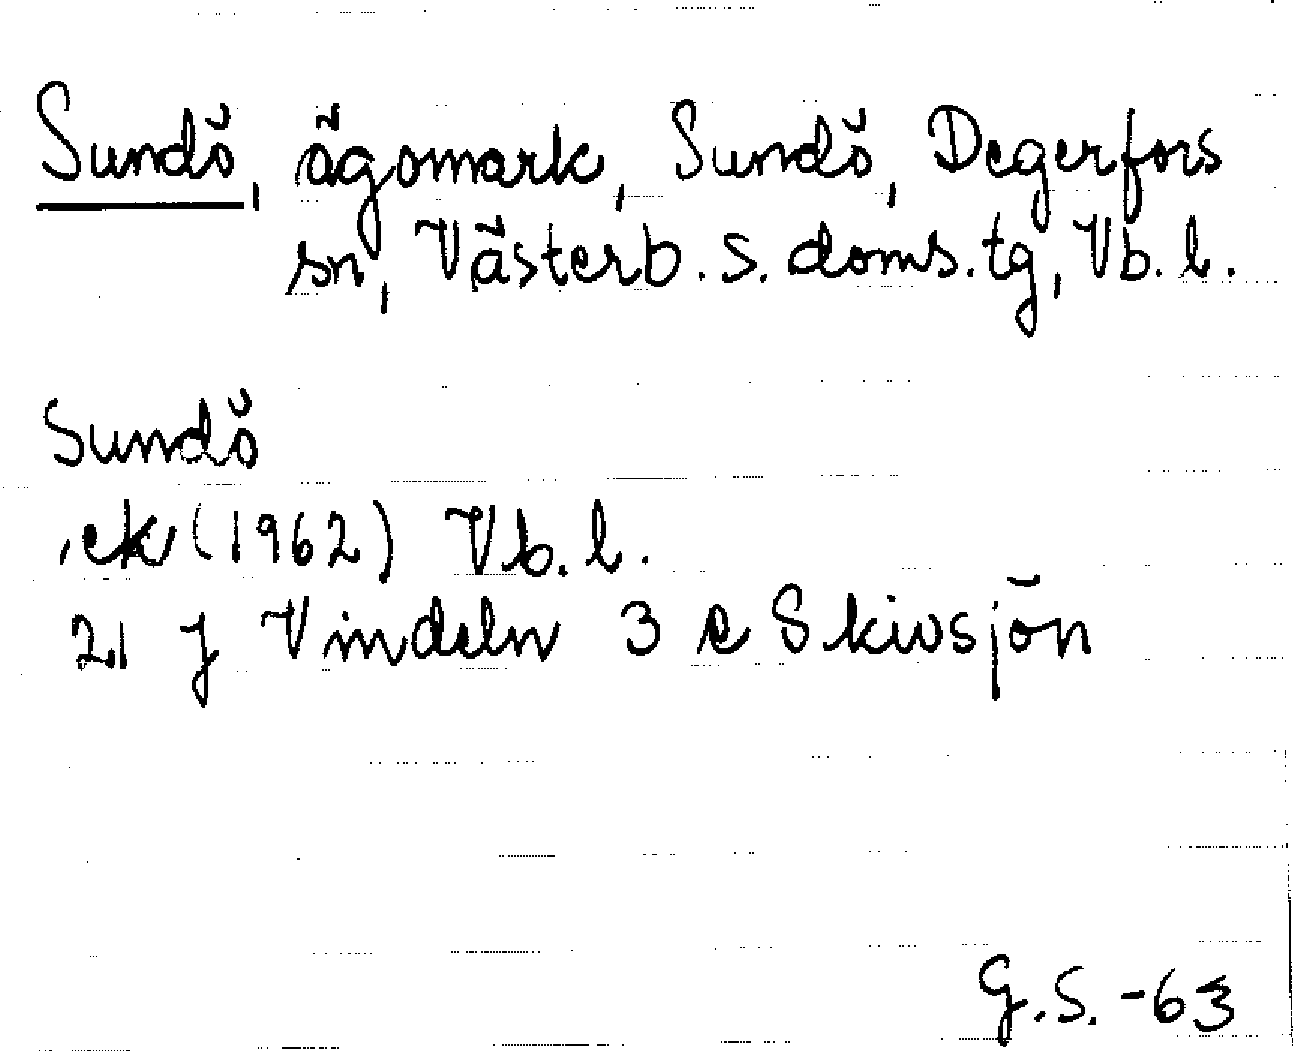 Sundö, ägomark, Sundö, Degerfors
sn, Västerb. s. doms. tg, Vb. l.
Sundö
, ek (1962) Vb. l.
21 J Vindeln 3 e Skivsjön
G.S. -63